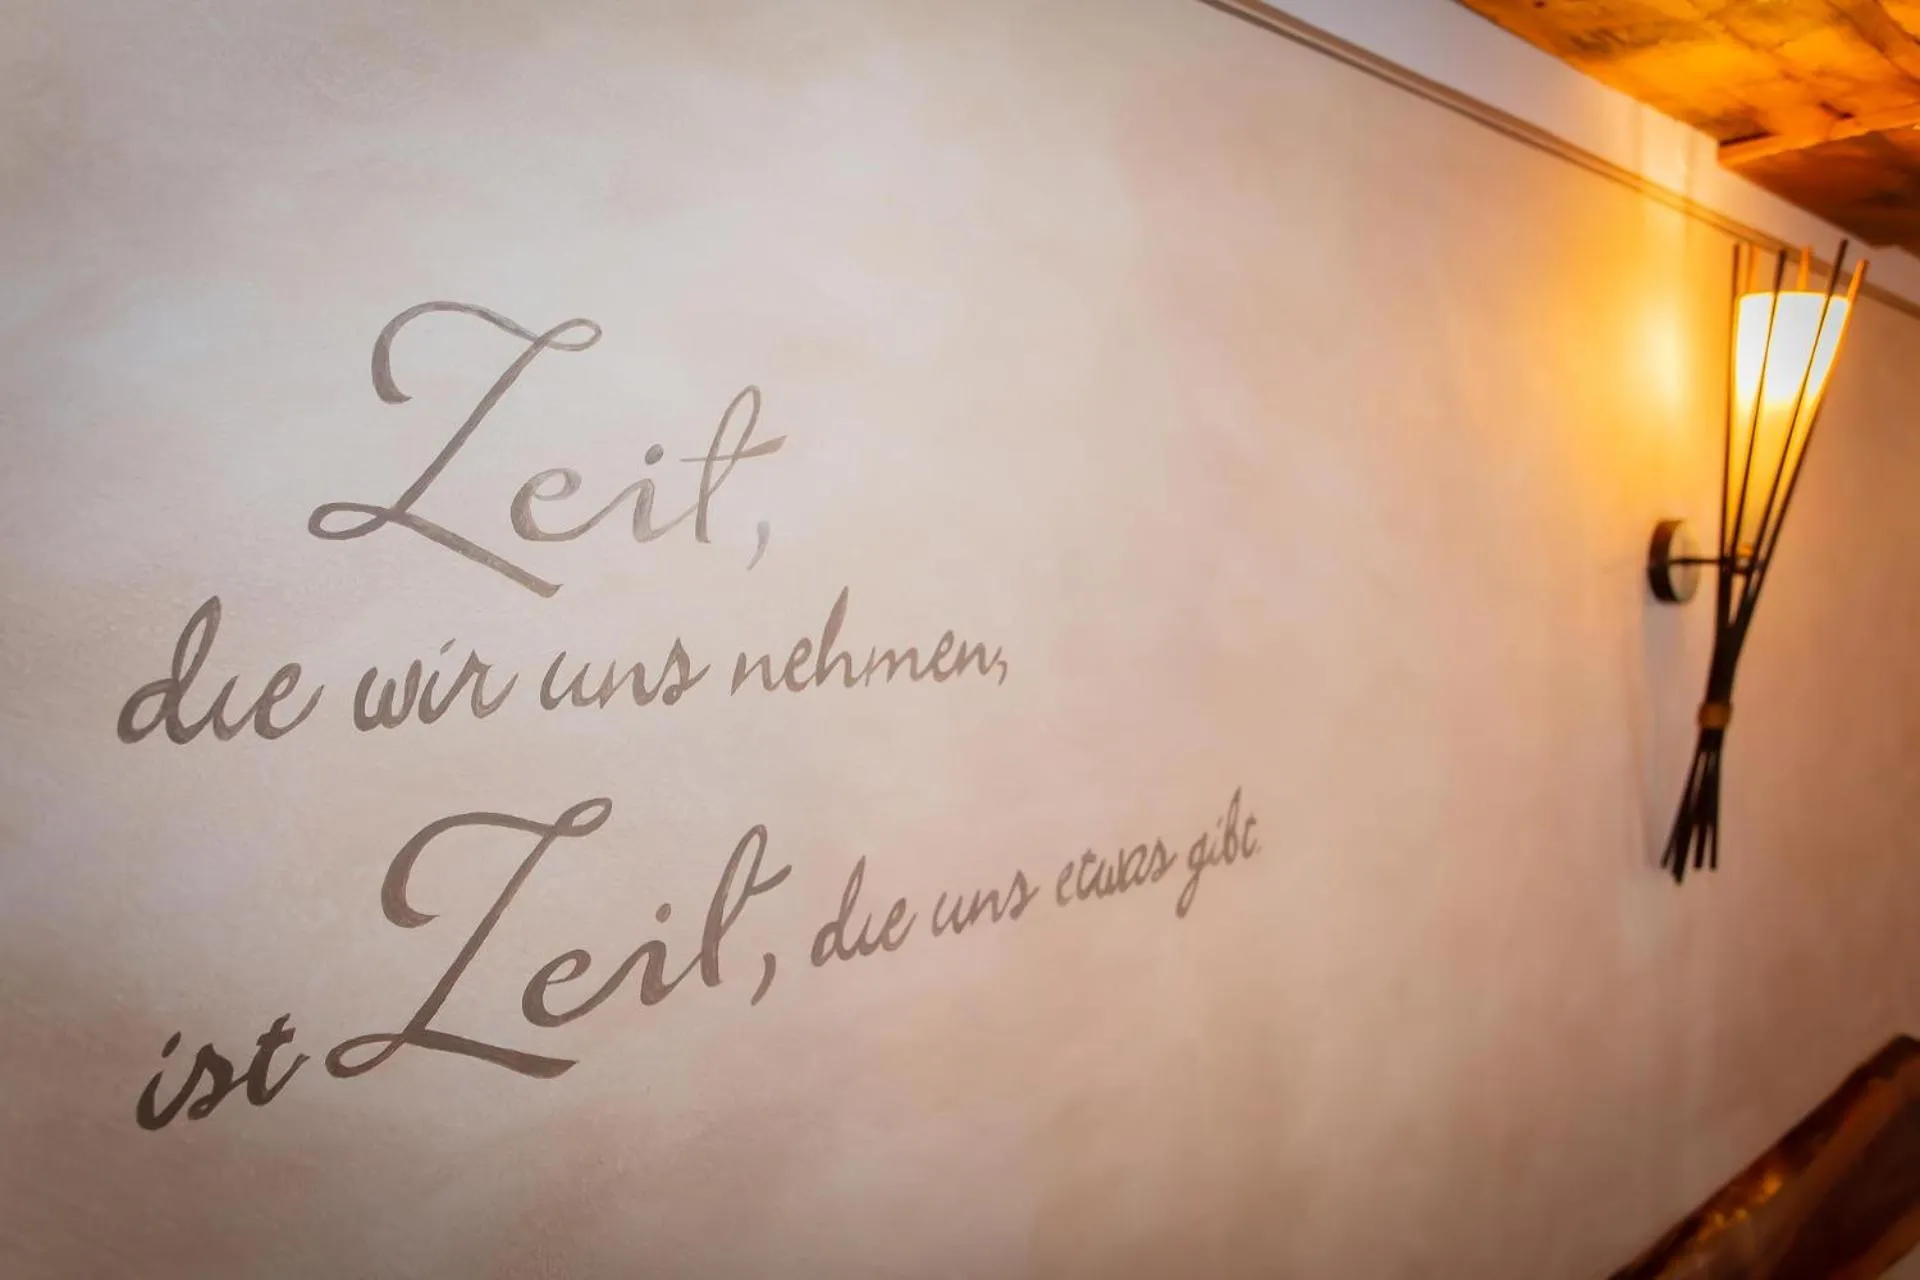 Zeit,
die wir uns nehmen,
ist Zeit, die uns etwas gibt.